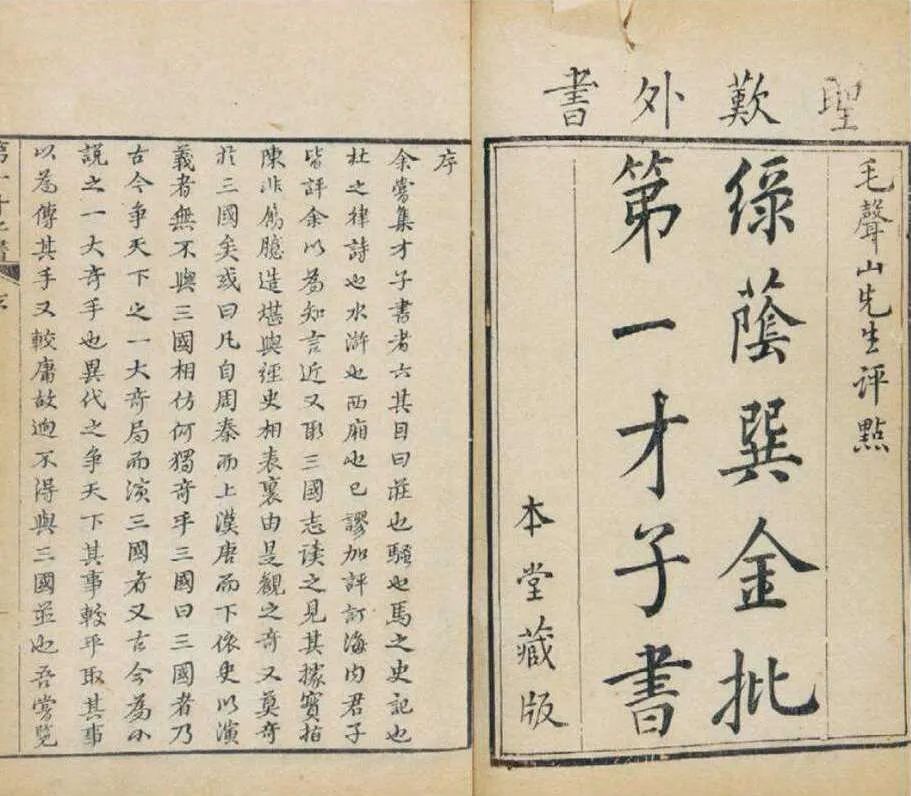 聖歎外書
毛聲山先生評點
綠蔭巽金批
第一才子書
本堂藏版
序
余嘗集才子書者六其目曰莊也騷也馬之史記也
杜之律詩也水滸也西廂也已謬加評訂海内君子
皆評余以為知言近又取三國志读之見其據實指
陳非属臆造堪與經史相表裏由是觀之奇又莫奇
於三國矣或曰凡自周秦而上漢唐而下依史以演
義者無不與三國相仿何獨奇乎三國曰三國者乃
古今爭天下之一大奇局而演三國者又古今為小
說之一大奇手也異代之爭天下其事較平取其事
以為傳其手又較庸故迥不得與三國並也吾嘗覽